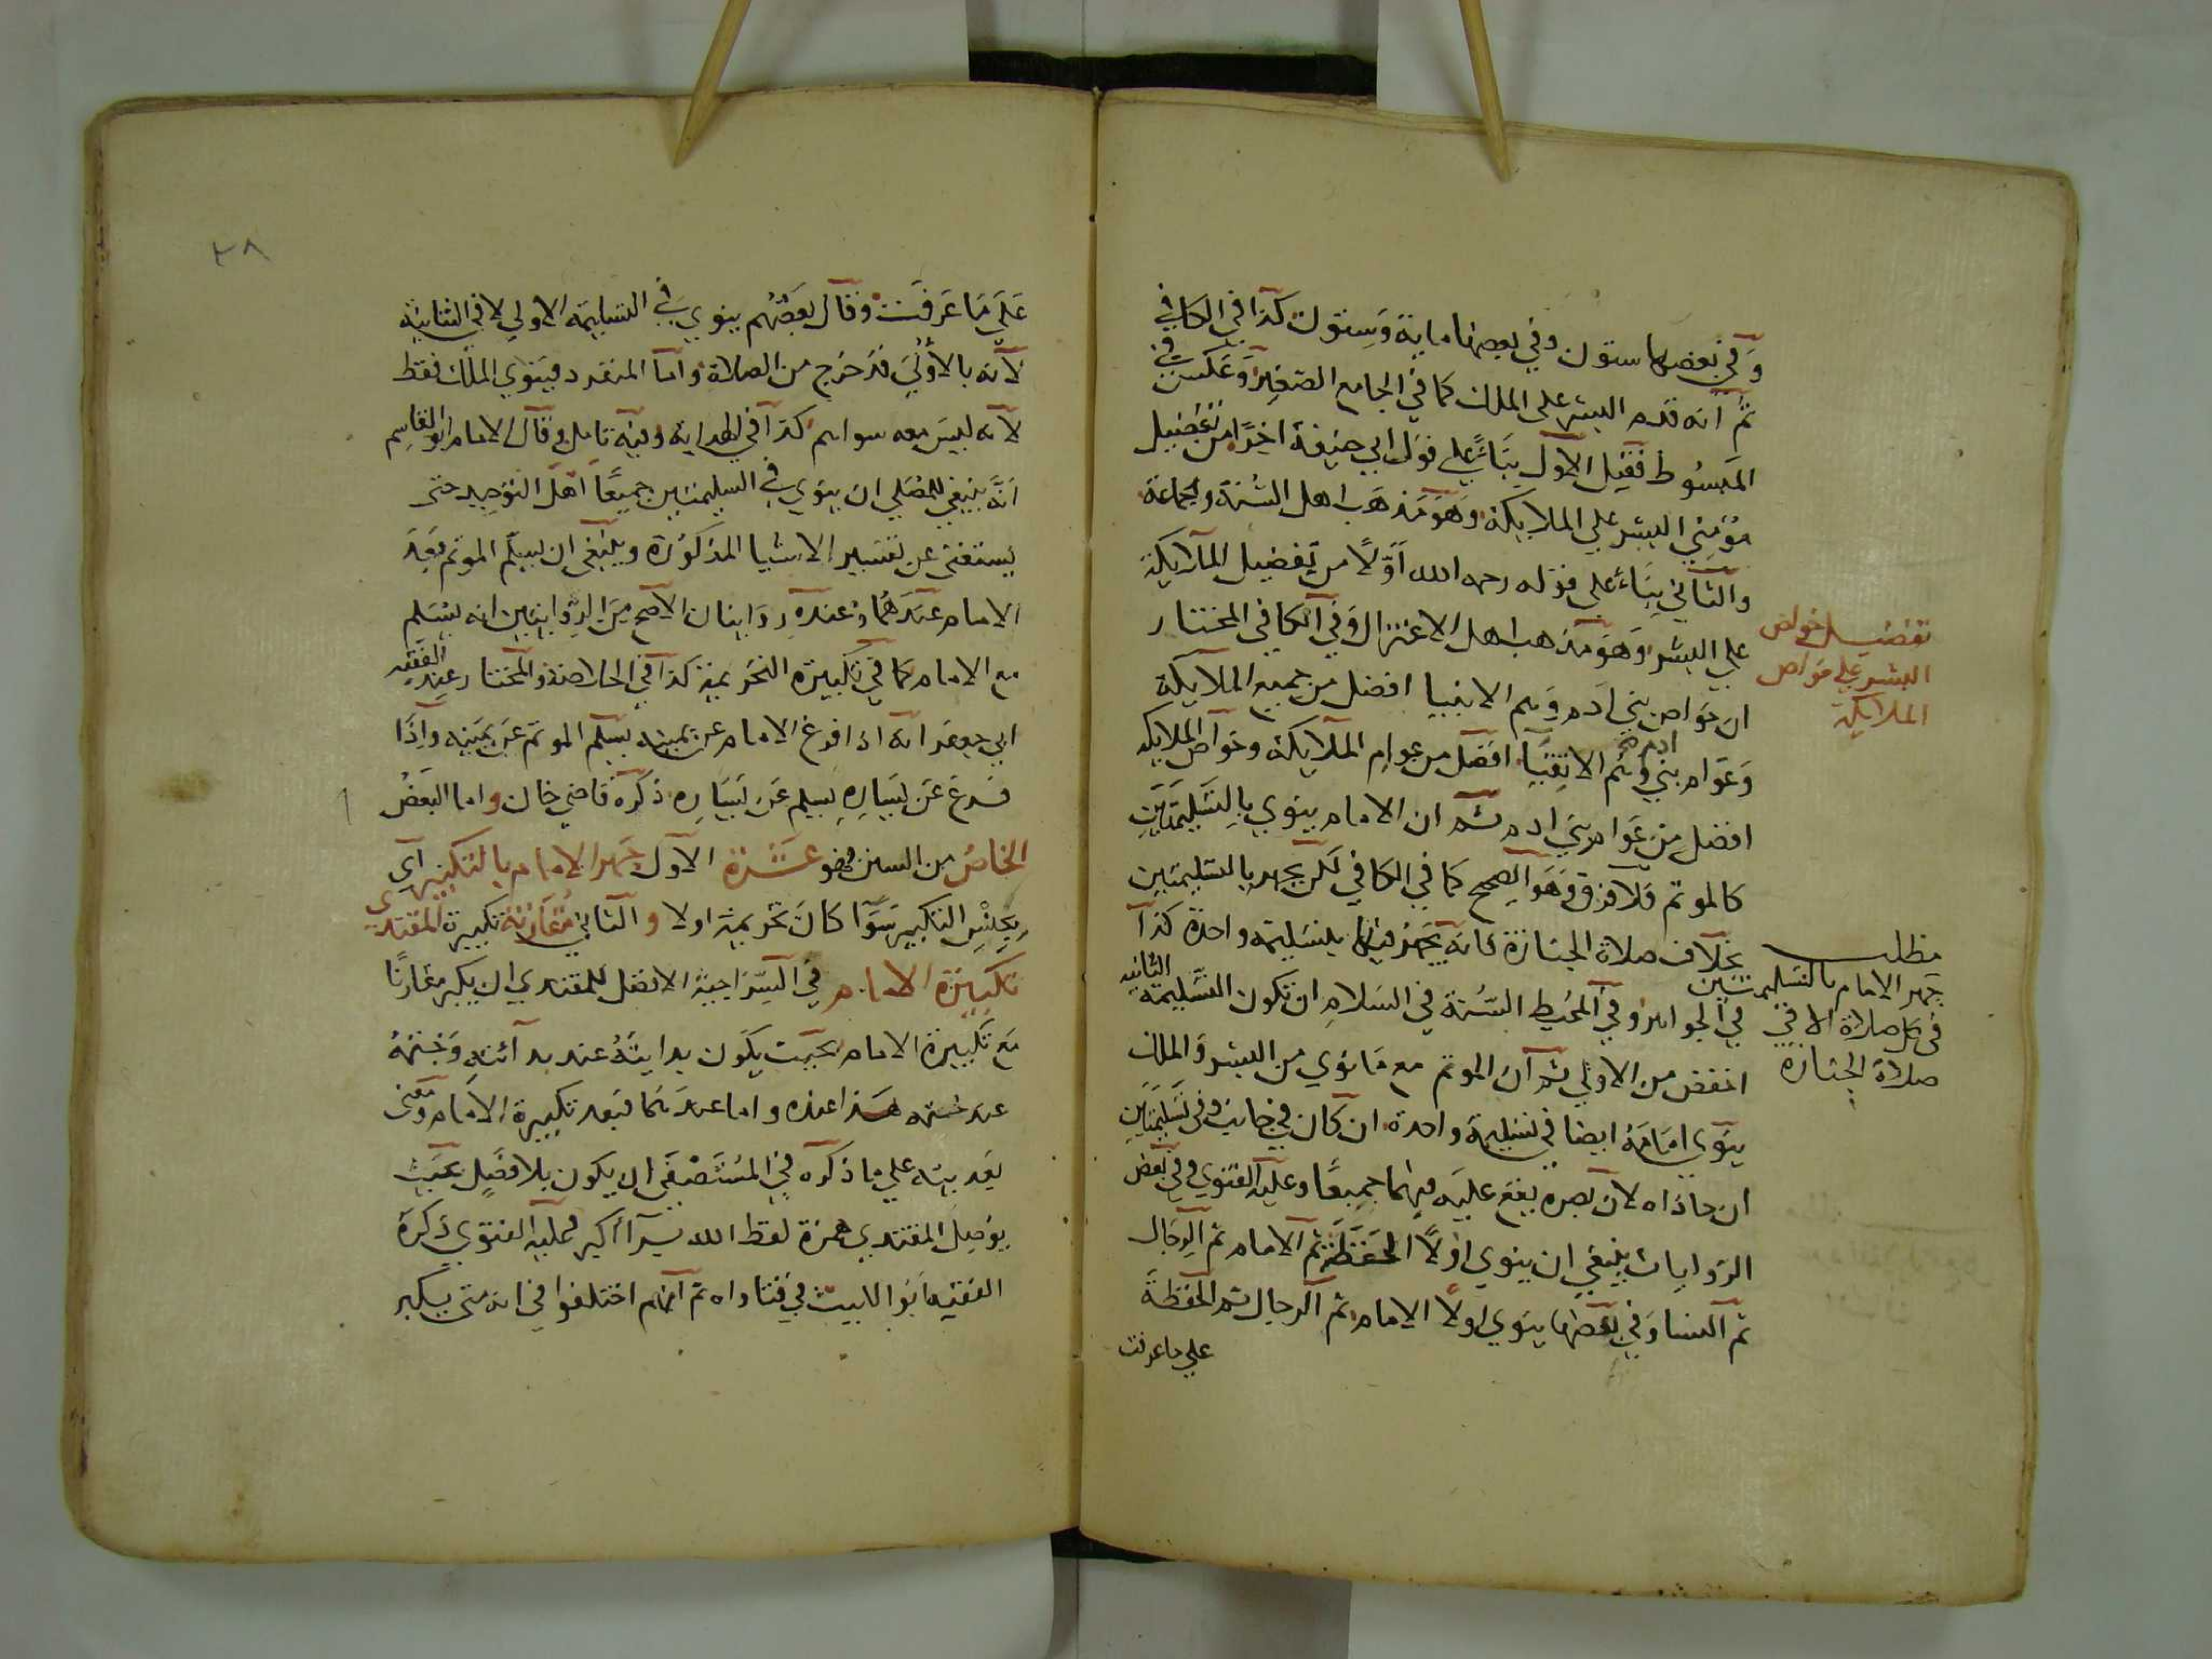 وفي بعضها ستون وفي بعضها ماية وستون كذا في الكافي
ثم انه قدم البشر على الملك كما في الجامع الصغير وعكس في
المبسوط فقيل الاول بناء على قول ابي حنيفة اخرا من تفضيل
مؤمني البشر على الملايكة وهو مذهب اهل السنة والجماعة
والثاني بناء على قوله رحمه الله اولا من تفضيل الملايكة
على البشر وهو مذهب اهل الاعتزال وفي الكافي المختار
ان خواص بني ادم وهم الانبيا افضل من جميع الملايكة
وعوام بني ادم وهم الاتقيا افضل من عوام الملايكة وخواص الملايكه
افضل من عوام بني ادم ثم ان الامام ينوي بالتسليمتين
كالموتم ولا فرق وهو الصحيح كما في الكافي لكن يجهر بالتسليمتين
بخلاف صلاة الجنازة فانه يجهر فيها بتسليمة واحدة كذا
في الجواهر وفي المحيط السنة في السلام ان تكون التسليمة الثانيه
اخفض من الاولي ثم ان الموتم مع ما نوي من البشر والملك
ينوي امامه ايضا في تسليمة واحدة ان كان في جانب وفي تسليمتين
ان حاذاه لان بصره يقع عليه فيهما جميعا وعليه الفتوي وفي بعض
الروايات ينبغي ان ينوي اولا الحفظة ثم الامام ثم الرجال
ثم النسا وفي بعضها ينوي اولا الامام ثم الرجال ثم الحفظة
علي ما عرفت
تفضيل خواص
البشر علي خواص
الملايكة
مطلب
جهر الامام بالتسليمتين
في كل صلاة الا في
صلاة الجنازه
٣٨
على ما عرفت وقال بعضهم ينوي في التسليمة الاولي لا في الثانيه
لانه بالاولي قد خرج من الصلاة واما المنفرد فينوي الملك فقط
لانه ليس معه سواهم كذا في الهداية وفيه تامل وقال الامام ابو القاسم
انه ينبغي للمصلي ان ينوي في التسليمتين جميعا اهل التوحيد حتى
يستغني عن تفسير الاشيا المذكورة وينبغي ان يسلم الموتم بعد
الامام عندهما وعنده روايتان الاصح من الروايتين انه يسلم
مع الامام كما في تكبيرة التحريمة كذا في الخلاصة والمختار عند الفقيه
ابي جعفر انه اذا فرغ الامام عن يمينه يسلم الموتم عن يمينه واذا
فرغ عن يساره يسلم عن يساره ذكره قاضي خان واما البعض
الخاص من السنن فهو عشرة الاول جهر الامام بالتكبير اي
بجنس التكبير سوا كان تحريمة او لا والثاني مقارنة تكبيرة المقتدي
تكبيرة الامام في السراجية الافضل للمقتدي ان يكبر مقارنا
مع تكبيرة الامام بحيث يكون بدايته عند بدائته وختمه
عند ختمه هذا عنده واما عندهما فبعد تكبيرة الامام ومعنى
بعديته على ما ذكره في المستصفى ان يكون بلا فصل بحيث
يوصل المقتدي همزة لفظ الله براء اكبر وعليه الفتوي ذكره
الفقيه ابو الليث في فتاواه ثم انهم اختلفوا في انه متى يكبر